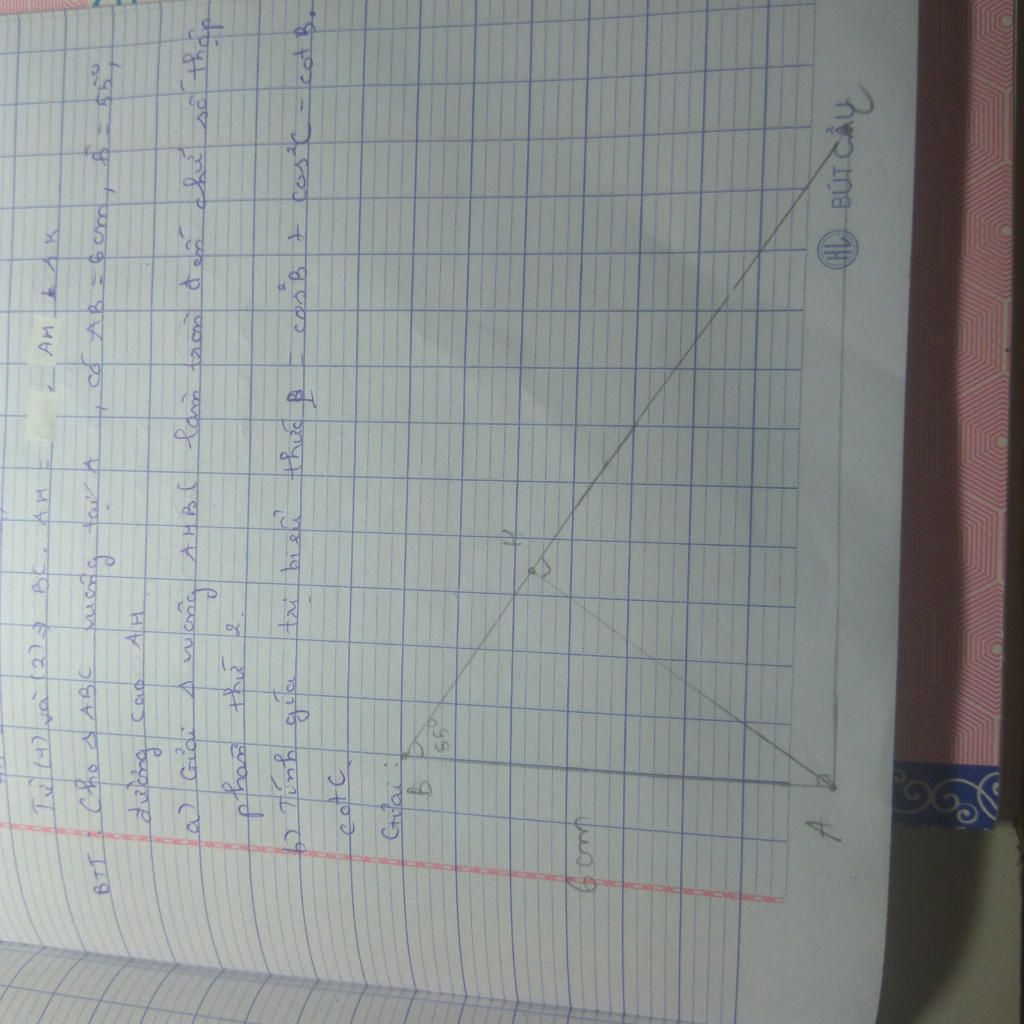 Từ (1) và (2) ⇒ BC. AH = . AH . AK
BTT: Cho Δ ABC vuông tại A, có AB = 6cm, B̂ = 55°,
đường cao AH.
a) Giải Δ vuông AHBC làm tròn đến chữ số thập
phân thứ 2.
b) Tính gía trị biểu thức B = cos²B + cos²C - cotB.
cotC
Giải:
B
55°
H
6 cm
A
HL BÚT CÂY